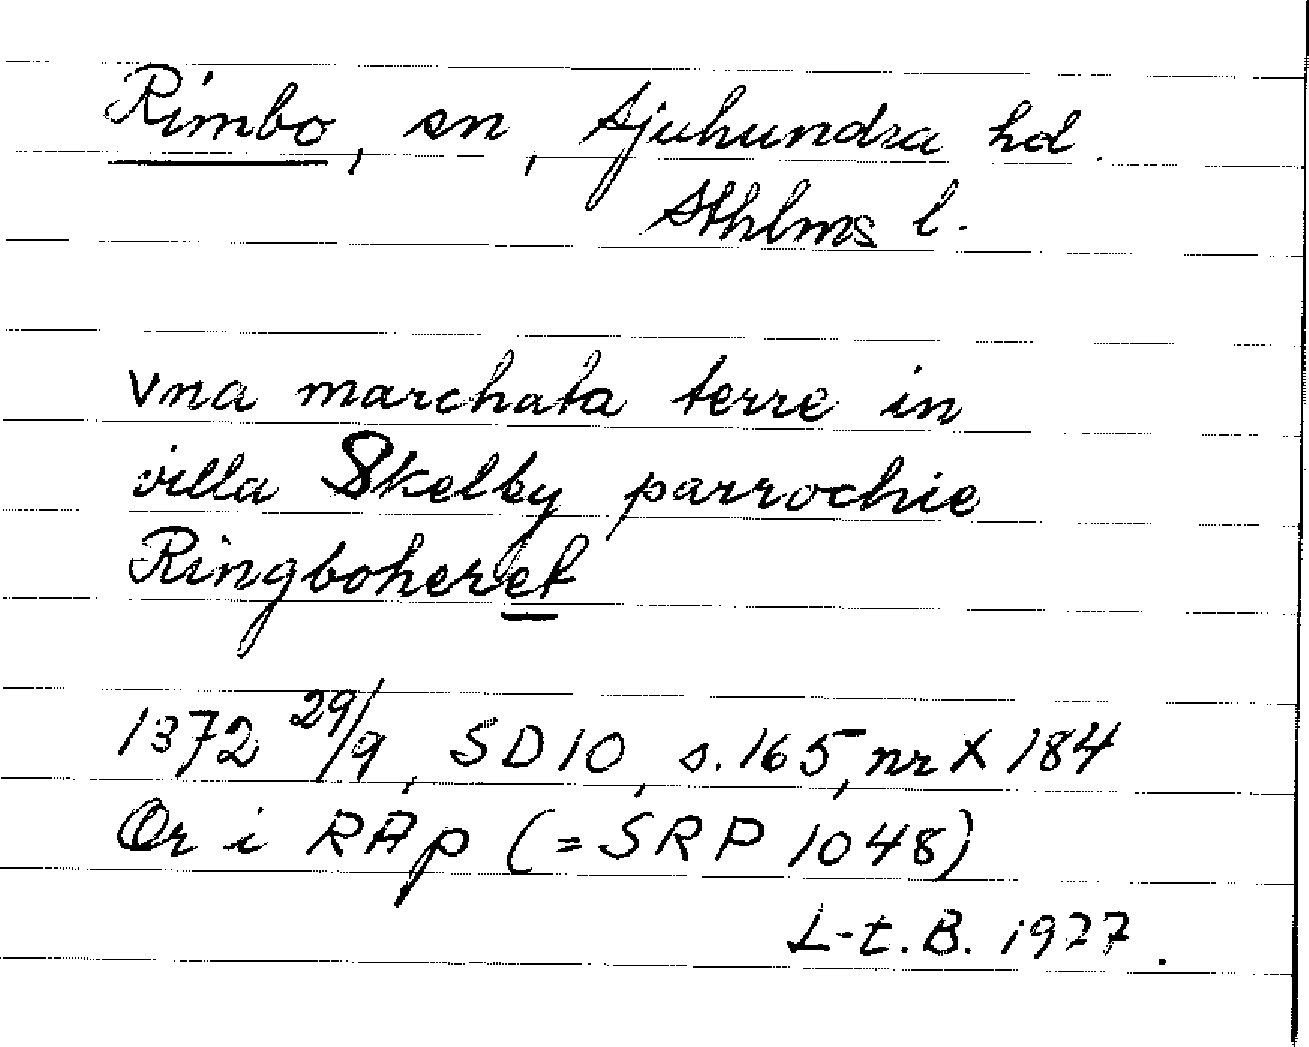 Rimbo, sn, Sjuhundra hd.
Sthlms l.
Vna marchata terre in
villa Skelby parrochie
Ringboheret
1372 29/9, SD10, s. 165, nr X 184
Or i RAp (= SRP 1048)
L-t. B. 1927.